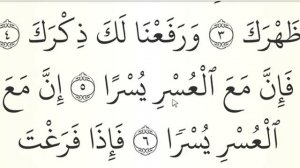 ظَهْرَكَ ٣ وَرَفَعْنَا لَكَ ذِكْرَكَ ٤
فَإِنَّ مَعَ ٱلْعُسْرِ يُسْرًا ٥ إِنَّ مَعَ
ٱلْعُسْرِ يُسْرًا ٦ فَإِذَا فَرَغْتَ